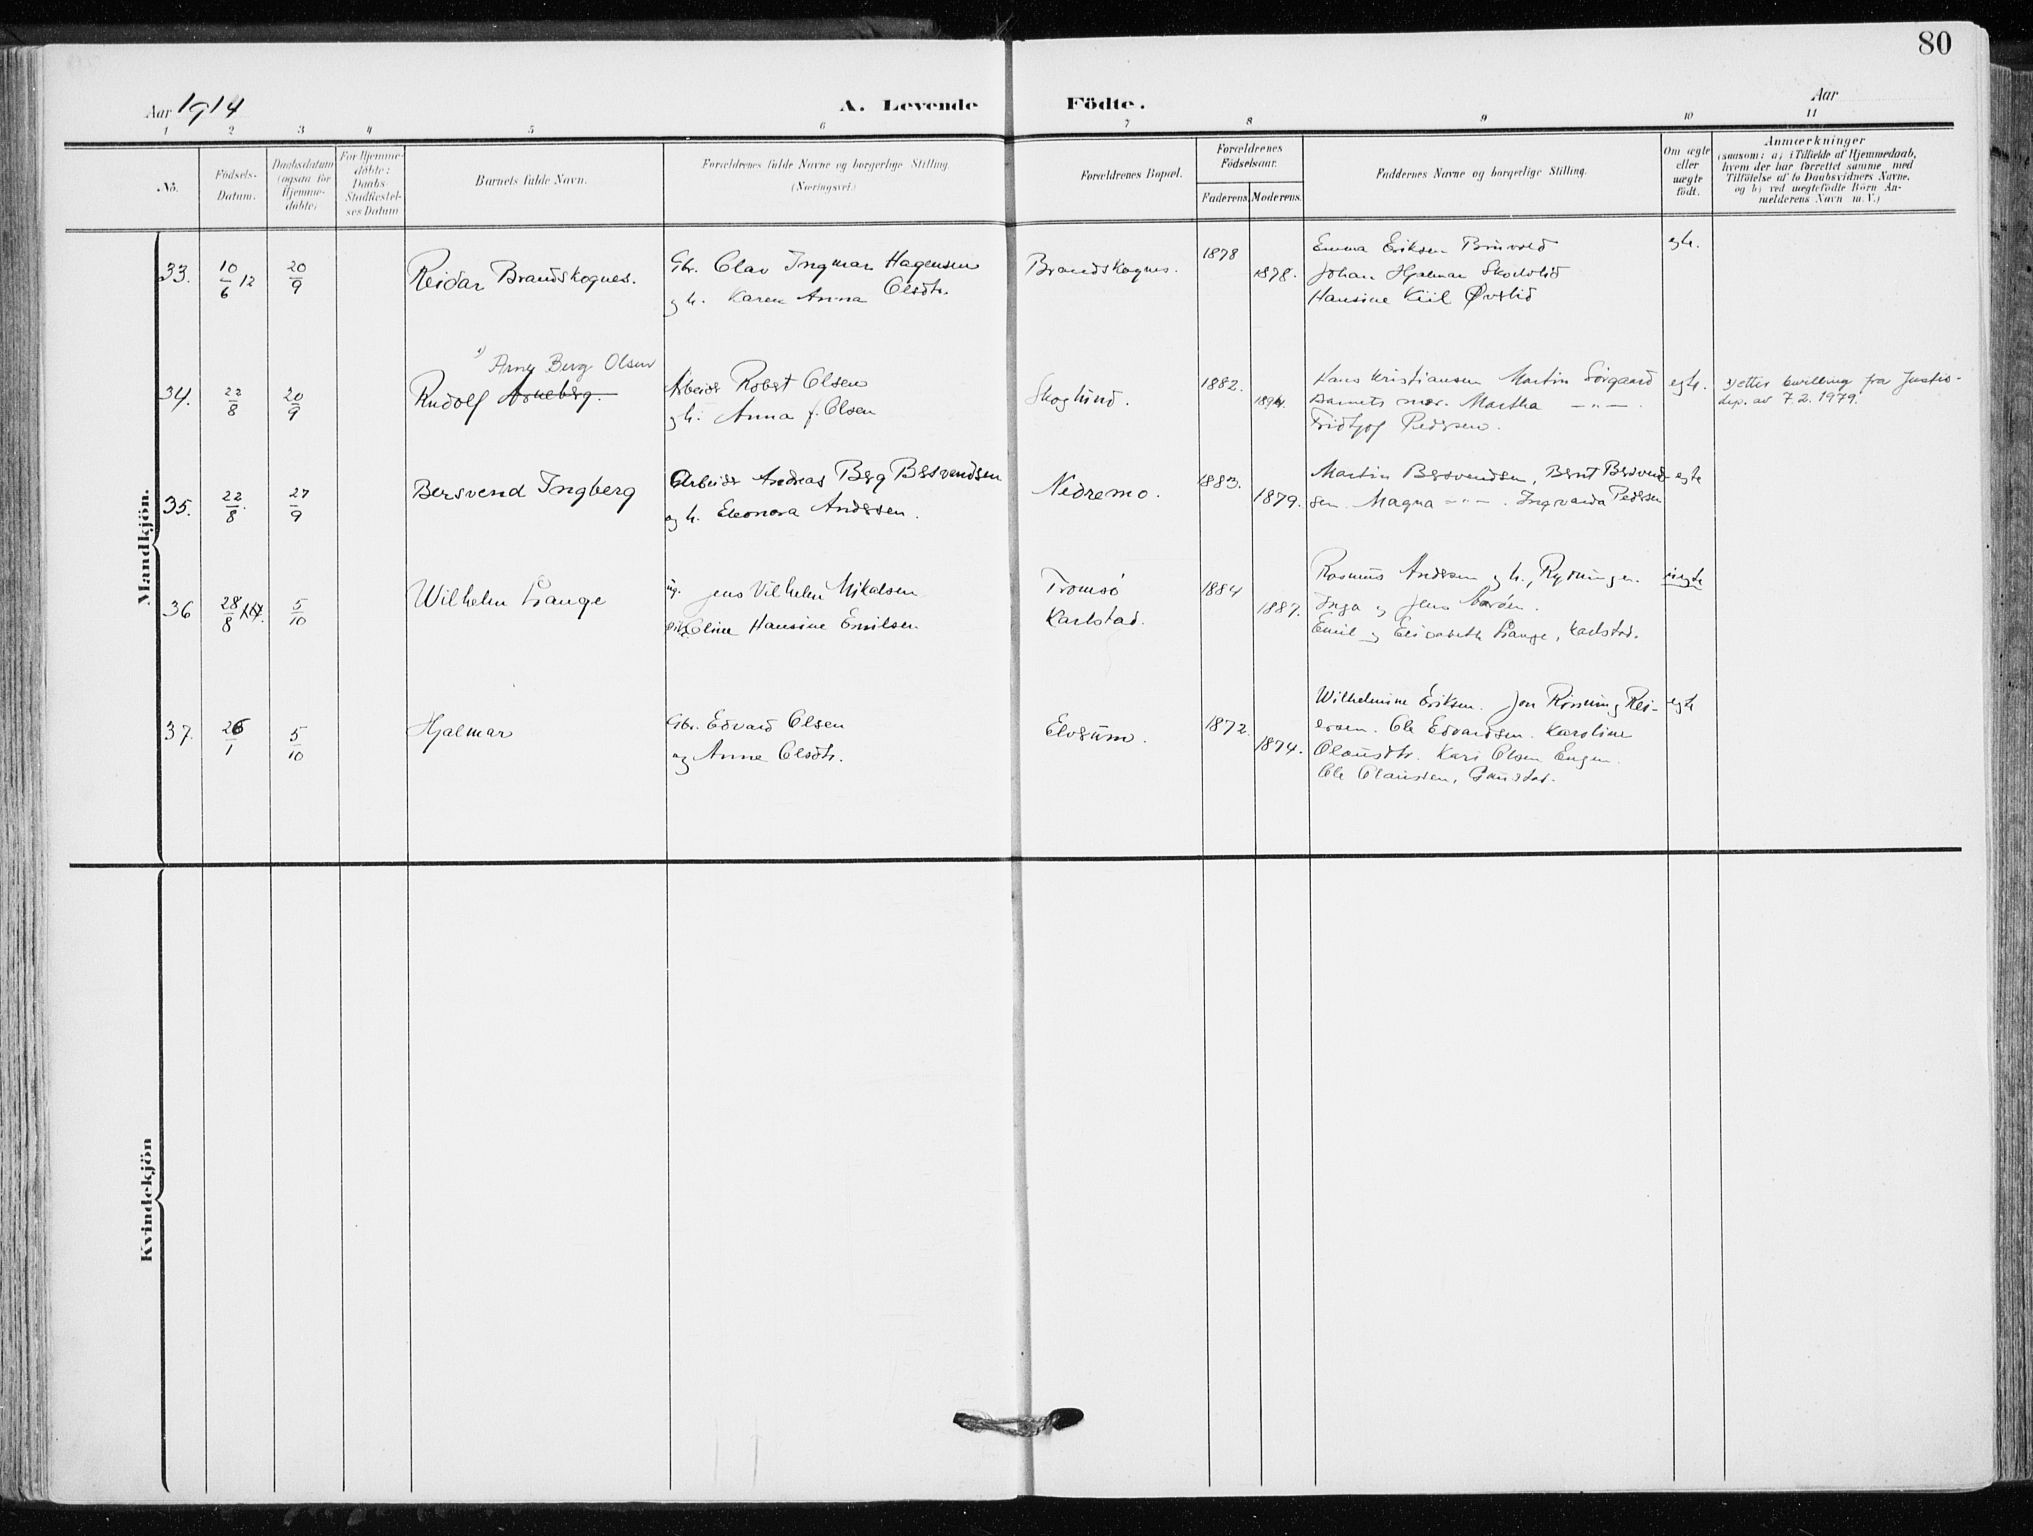 80
Aar 1914
A. Levende Födte.
Aar
1 2 3 4 5 6 7 8 9 10 11
No.
Födsels-Datum.
Daabsdatum (ogsaa for Hjemme-döbte)
For Hjemme-döbte: Daabs-Stadfæstel-ses Datum
Barnets fulde Navn.
Forældrenes fulde Navne og borgerlige Stilling (Næringsvei.)
Forældrenes Bopæl.
Forældrenes Födselsaar.
Faderens. Moderens.
Faddernes Navne og borgerlige Stilling.
Om ægte eller uægte födt.
Anmærkninger
(saasom: a) i Tilfælde af Hjemmedaab,
hvem der har forrettet samme, med
Tilföielse af to Daabsvidners Navne,
og b) ved uegtefödte Börn An-
melderens Navn m. V.)
Mandkjön.
33. 10/6 12 20/9 Reidar Brandskognes. Gbr. Olav Ingmar Hagensen
og h. Karen Anna Olsdtr.
Brandskognes. 1878 1878.
Emma Eriksen Brüvold
Johan Hjalmar Skodslid
Hansine Kiil Øvrlid
egte.
1) Arne Berg Olsen
34. 22/8 20/9 Rudolf Arneberg. Arbeider Robert Olsen
og h. Anna f. Olsen
Skoglund. 1882. 1894.
Hans Kristiansen Martin Sörgaard
Barnets mor. Martha —"—.
Fridtjof Pedersen.
egte.
1) etter bevilling fra Justis-
dep. av 7.2.1979.
35. 22/8 27/9 Bersvend Ingberg Arbeider Andreas Berg Bersvendsen
og h. Eleonora Andersen.
Nedremo. 1883. 1879.
Martin Bersvendsen, Bernt Bersvend-
sen. Magna —"—. Ingvarda Pedersen
egte
36 28/8 14. 5/10 Wilhelm Lange ug. Jens Vilhelm Mikalsen
pike Oline Hansine Emilsen
Tromsö
Karlstad. 1884 1887.
Rasmus Andersen og h., Rydningen.
Inga og Jens Norden.
Emil og Elisabeth Lange, Karlstad.
uegte
37. 26/1 5/10 Hjalmar Gbr. Edvard Olsen
og Anne Olsdtr.
Elvsum. 1872. 1874.
Wilhelmine Eriksen. Jon Rossing Rei-
ersen. Ole Edvardsen. Karoline
Olausdtr. Kari Olsen Engen.
Ole Olaussen, Gaustad.
egte
Kvindekjön